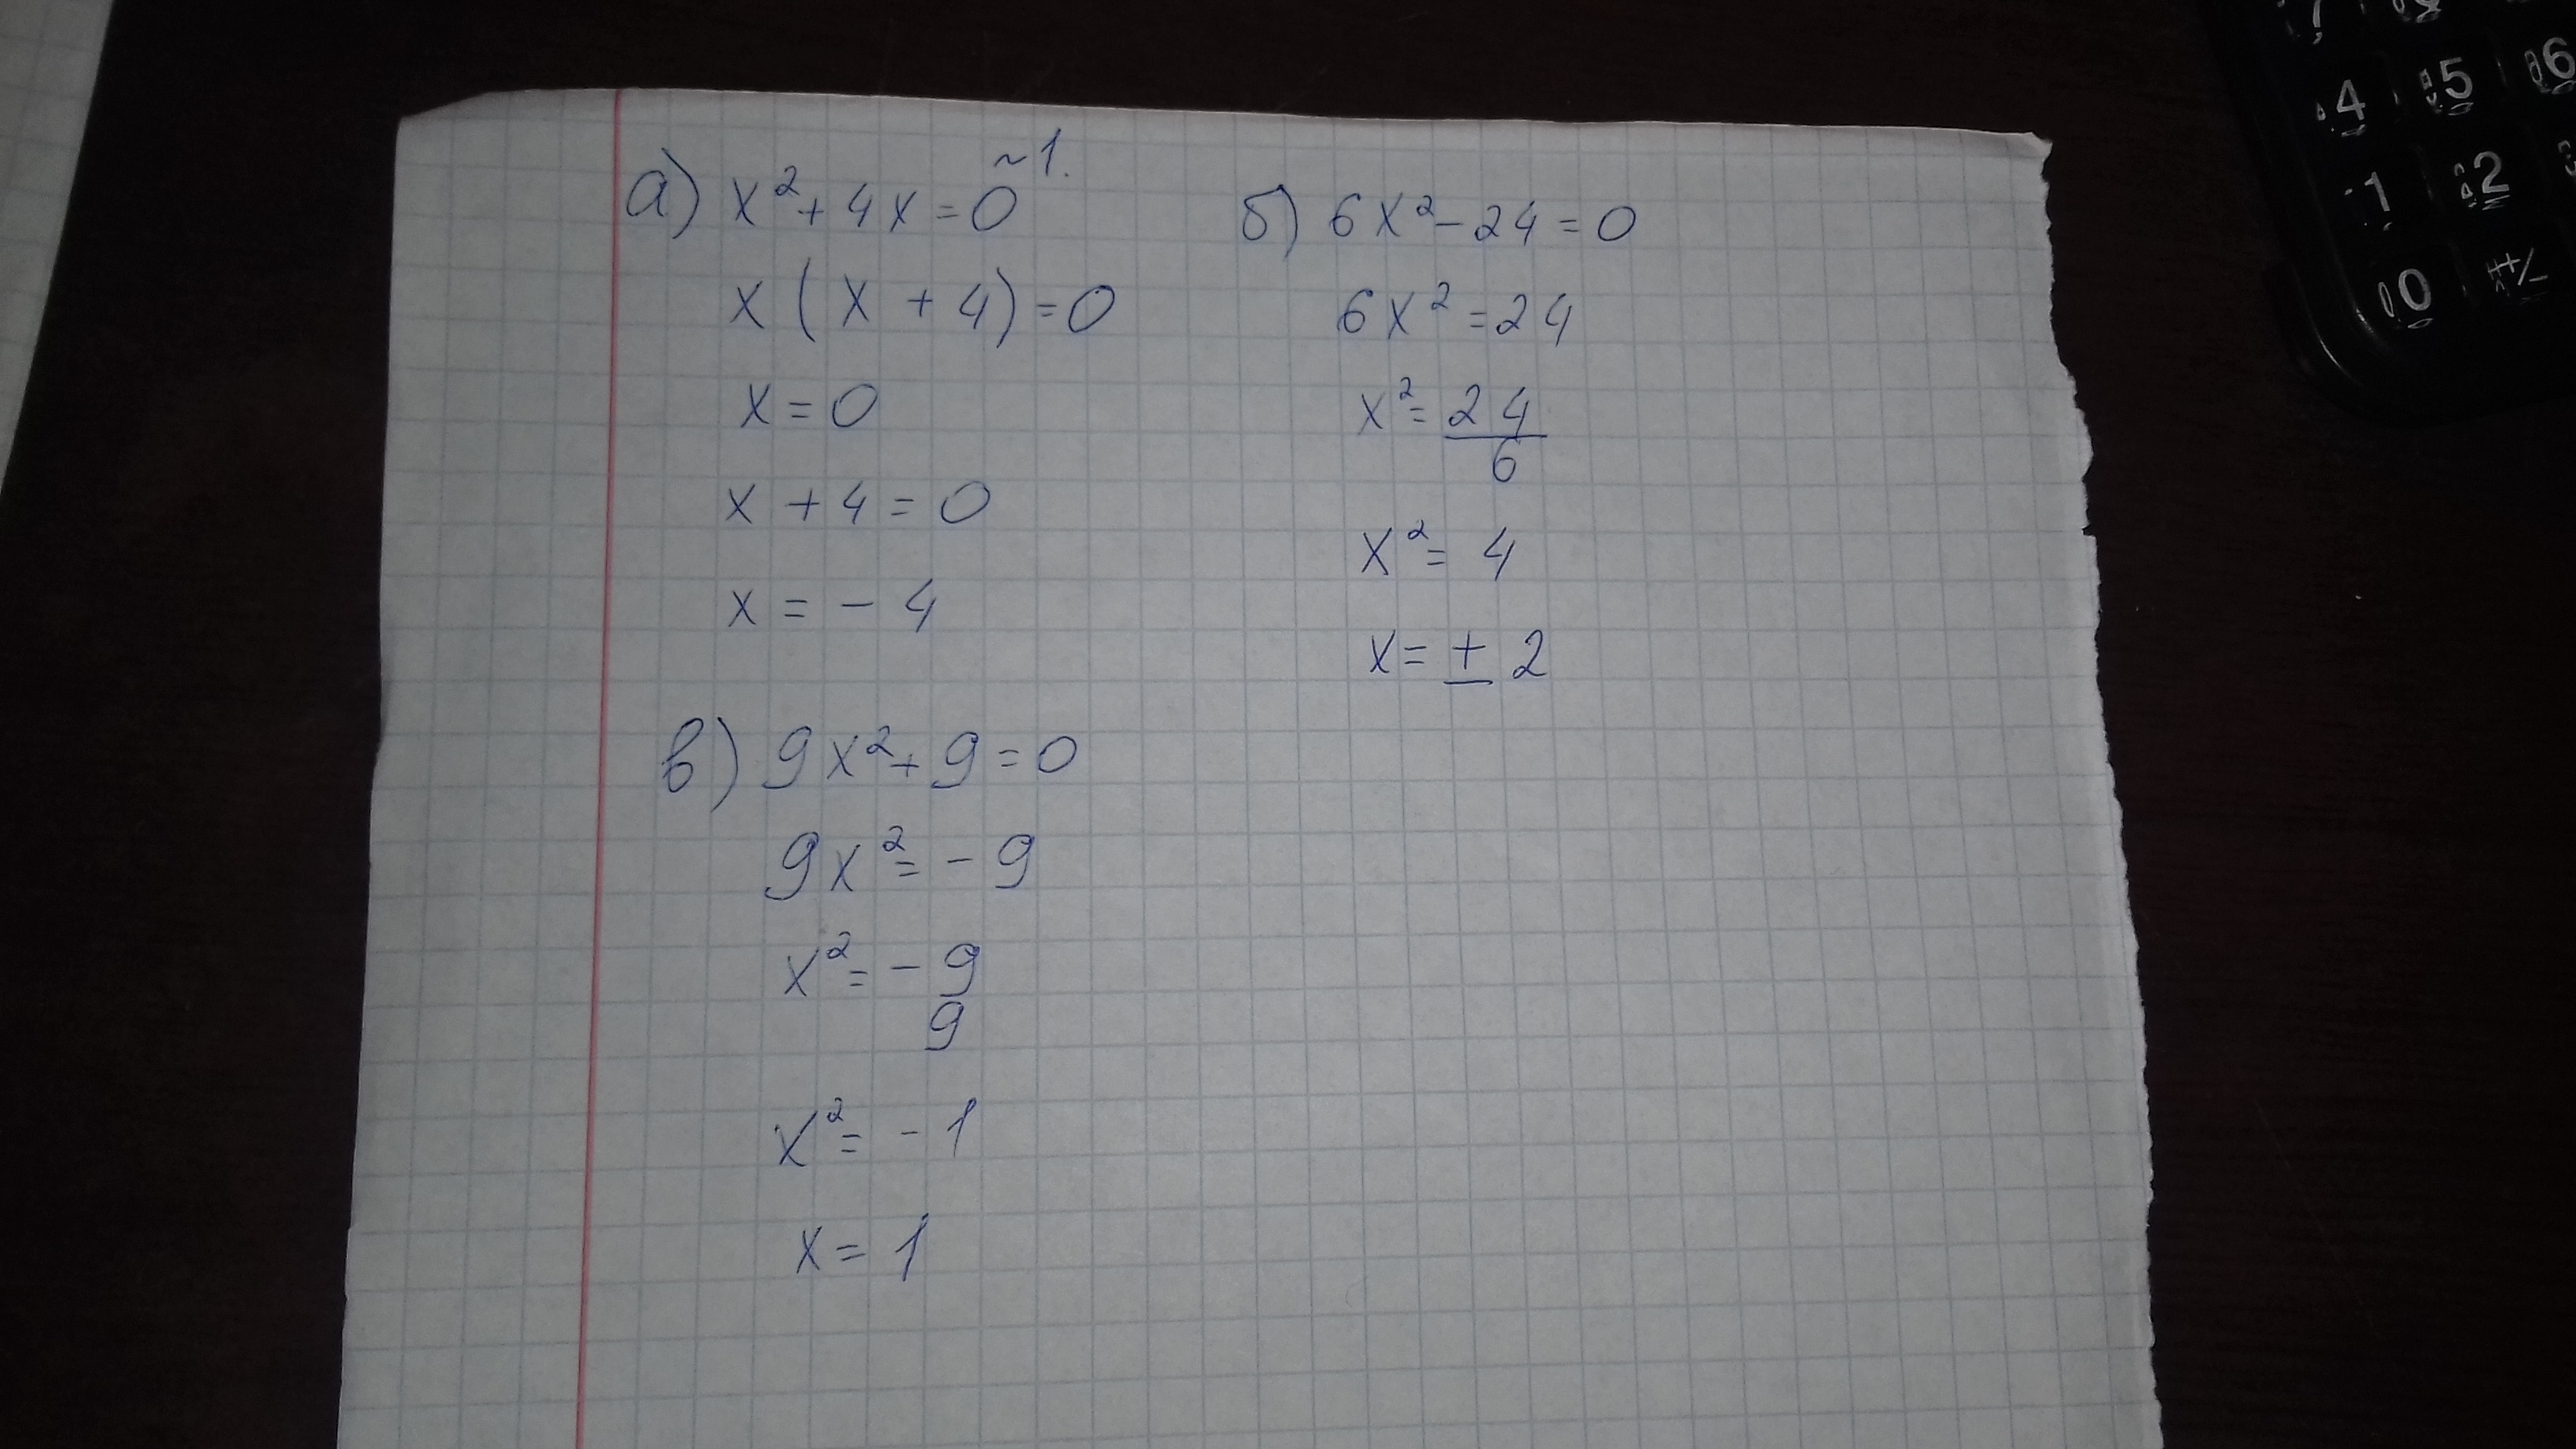 ~1.
а) x²+4x=0
x(x+4)=0
x=0
x+4=0
x=-4
б) 6x²-24=0
6x²=24
x²=24/6
x²=4
x=±2
в) 9x²+9=0
9x²=-9
x²=-9/9
x²=-1
x=1
4 5 6
1 2
0 +/-